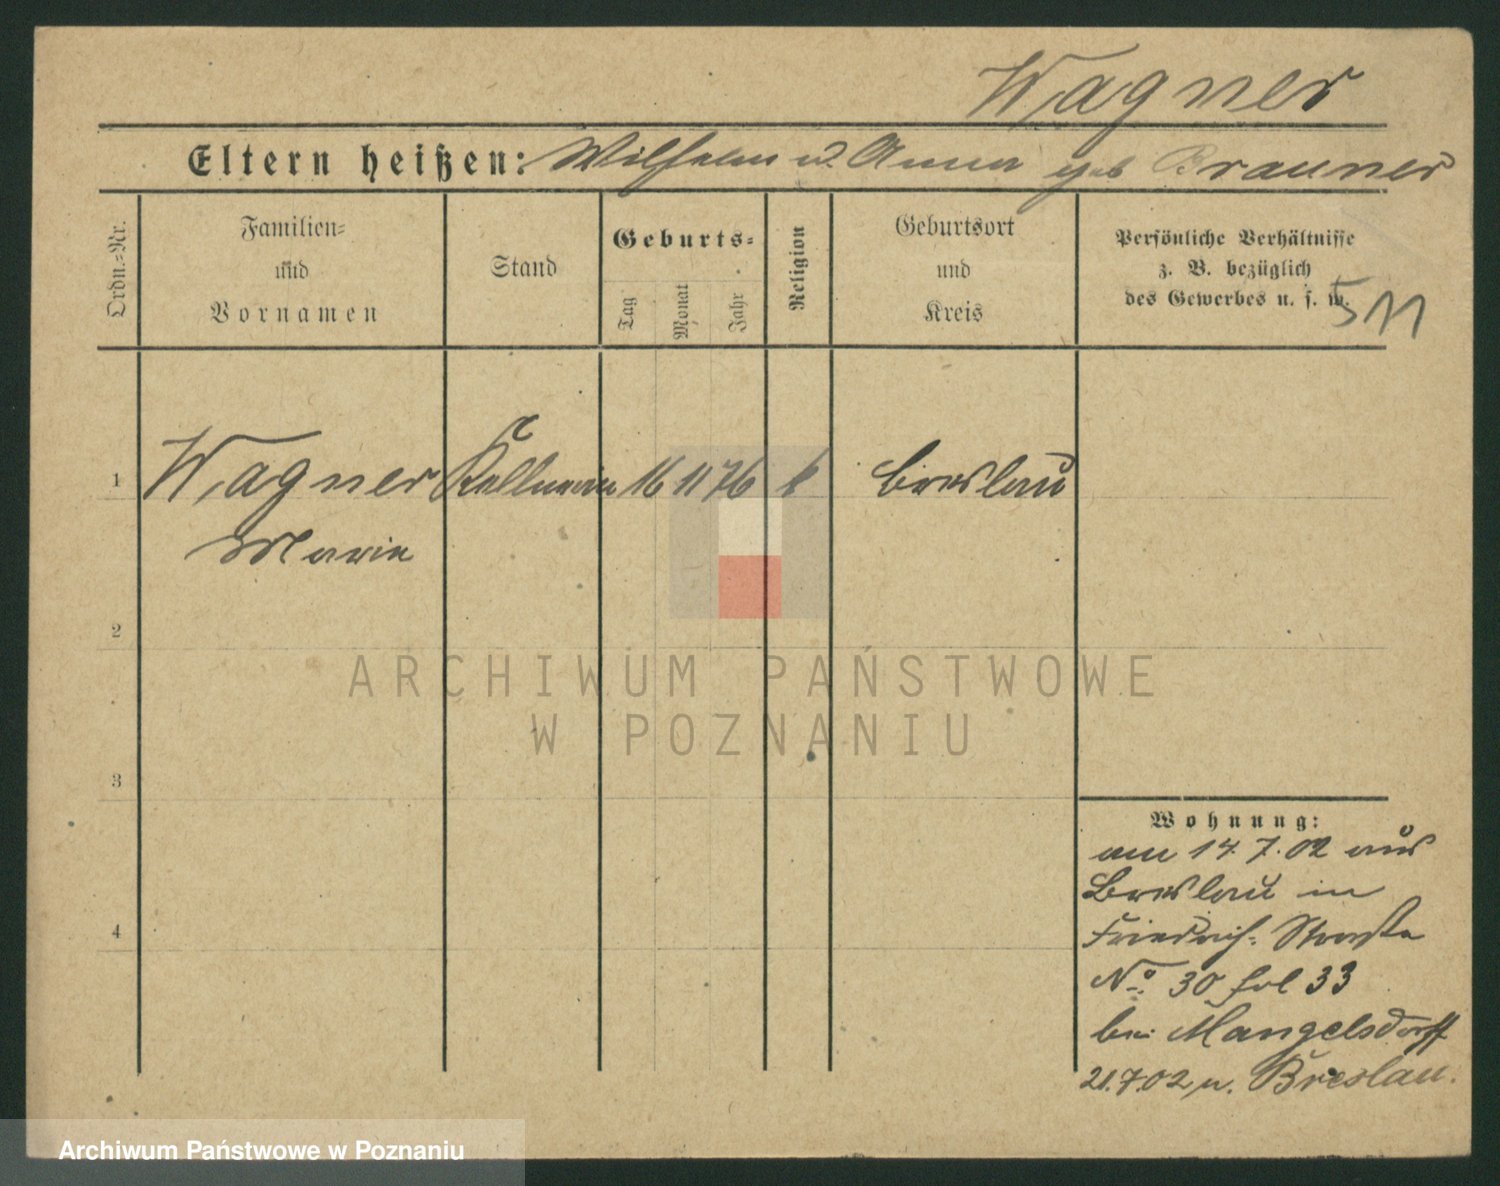 Wagner
Eltern heißen: Wilhelm u. Anna geb Brauner
Ordn.=Nr.
Familien=
und
Vornamen
Stand
Geburts=
Tag
Monat
Jahr
Religion
Geburtsort
und
Kreis
Persönliche Verhältnisse
z. B. bezüglich
des Gewerbes u. s. w.
511
1 Wagner Kellnerin 16 11 76 k Breslau
Marie
2
3
4
Wohnung:
am 14.7.02 aus
Breslau in
Friedrich-Straße
No 30 fol 33
bei Mangelsdorff
21.7.02 n. Breslau.
ARCHIWUM PAŃSTWOWE
W POZNANIU
Archiwum Państwowe w Poznaniu